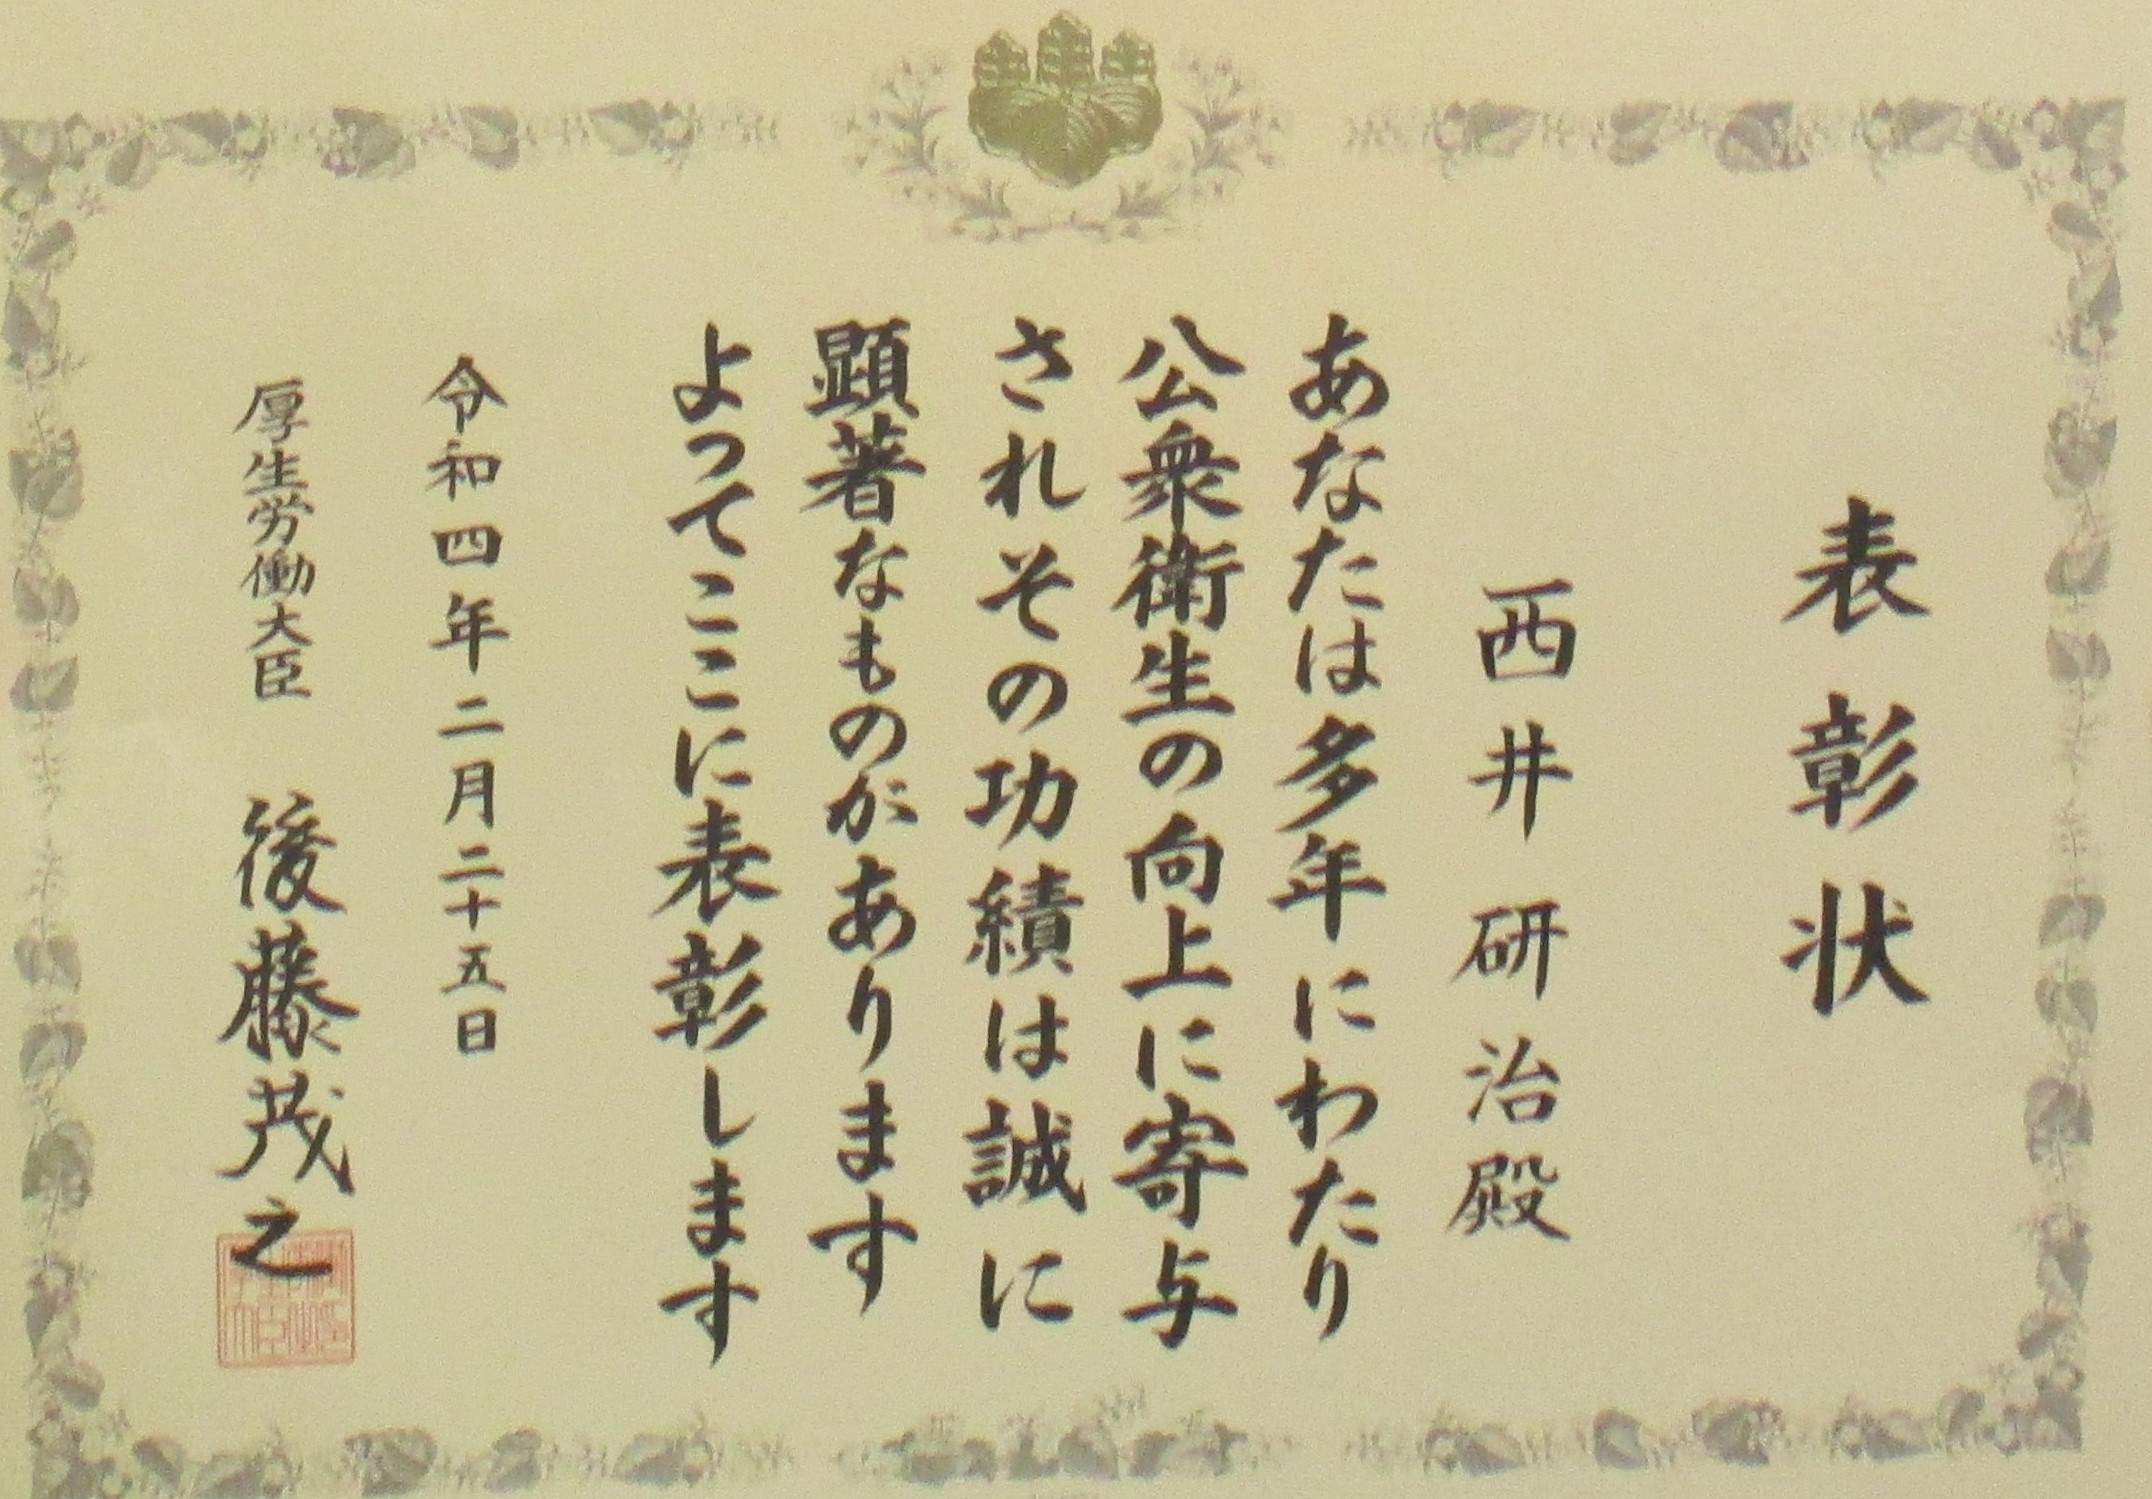 表彰状
西井研治殿
あなたは多年にわたり
公衆衛生の向上に寄与
されその功績は誠に
顕著なものがあります
よってここに表彰します
令和四年二月二十五日
厚生労働大臣 後藤茂之